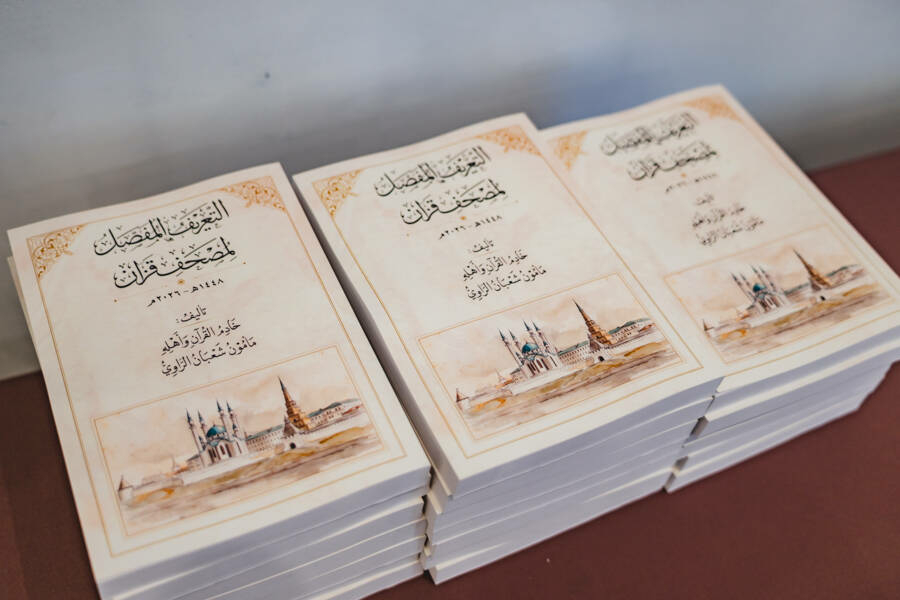 التعريف المفصل
لمصحف قزان
١٤٤٨هـ - ٢٠٢٦م
تأليف:
خَادِمُ القُرْآنِ وَأَهْلِهِ
مَأمُوْنْ شَعْبَانُ الرَّاوِيْ
التعريف المفصل
لمصحف قزان
١٤٤٨هـ - ٢٠٢٦م
تأليف:
خَادِمُ القُرْآنِ وَأَهْلِهِ
مَأمُوْنْ شَعْبَانُ الرَّاوِيْ
التعريف المفصل
لمصحف قزان
١٤٤٨هـ - ٢٠٢٦م
تأليف:
خَادِمُ القُرْآنِ وَأَهْلِهِ
مَأمُوْنْ شَعْبَانُ الرَّاوِيْ